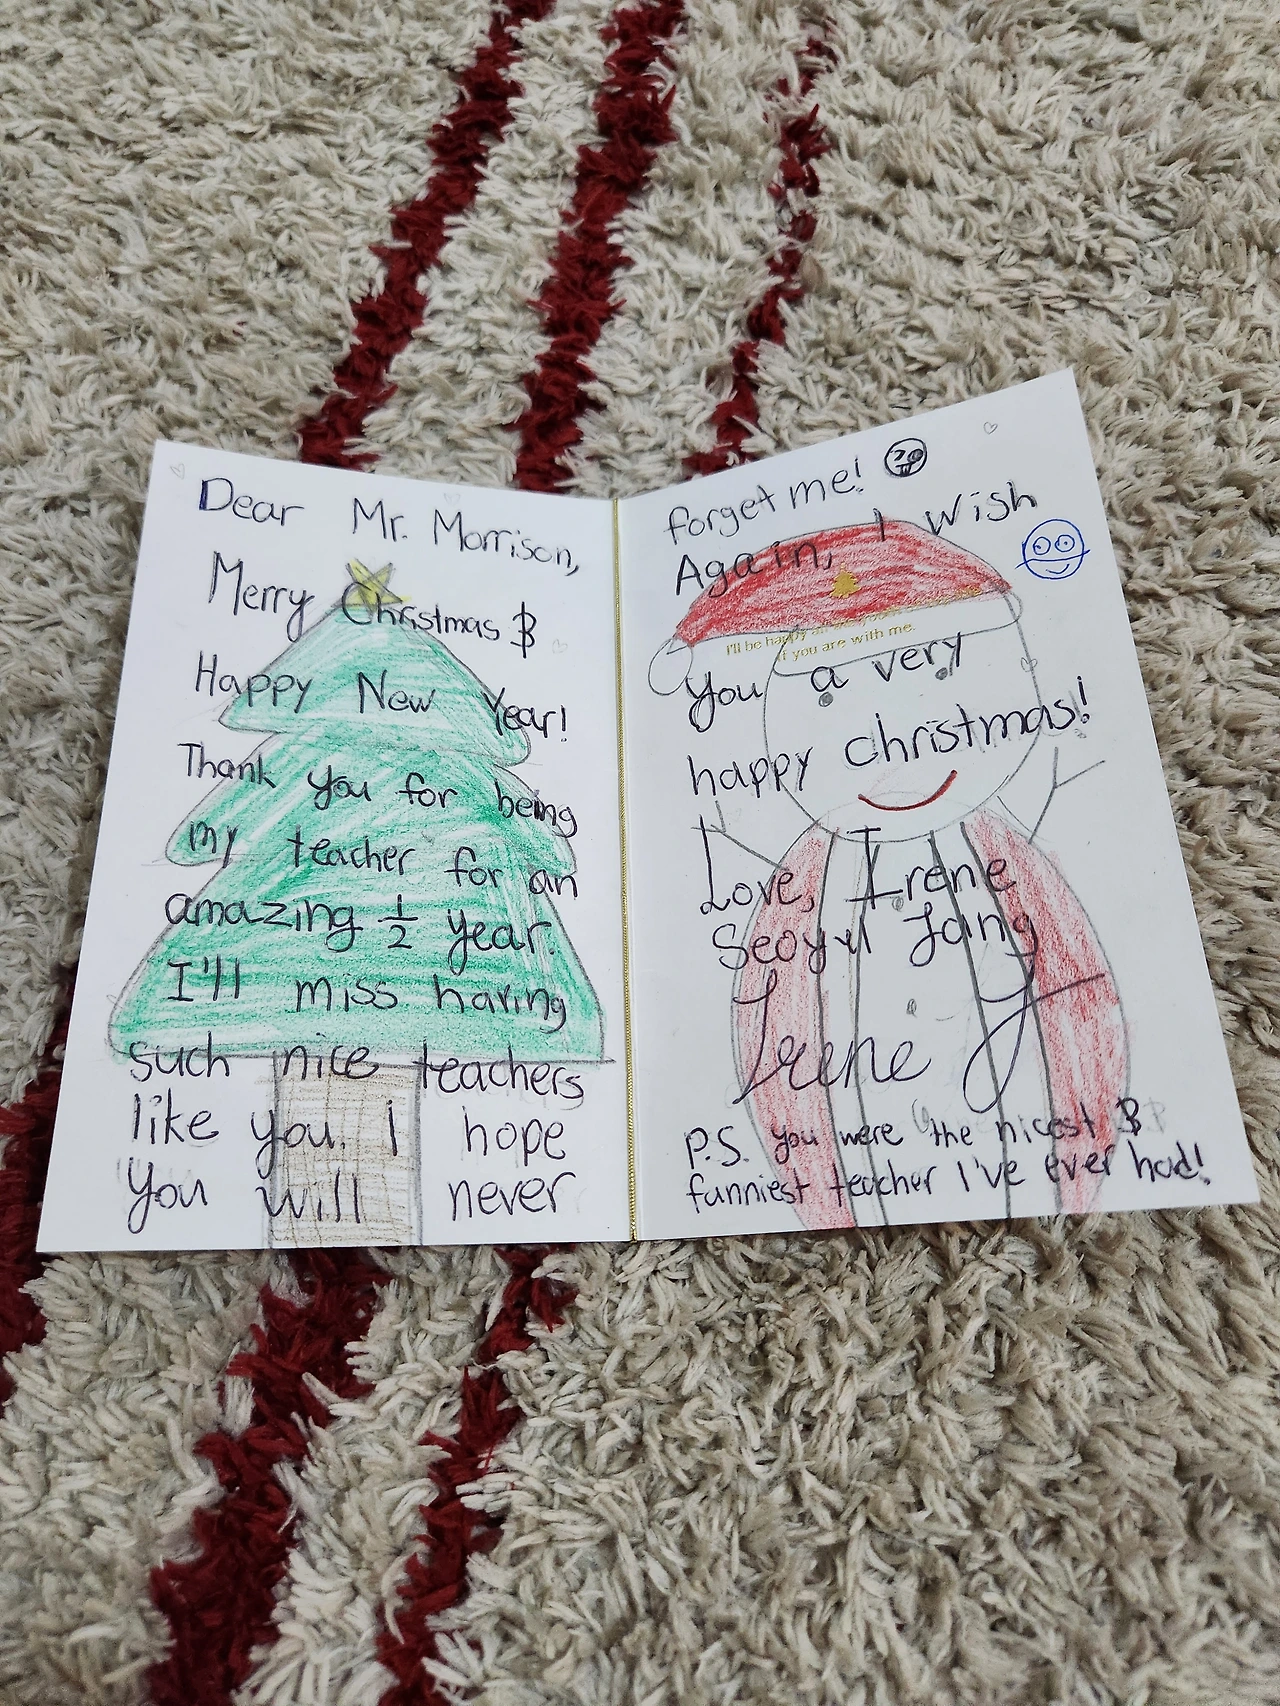 Dear Mr. Morrison,
Merry Christmas &
Happy New Year!
Thank you for being
my teacher for an
amazing 1/2 year.
I'll miss having
such nice teachers
like you. I hope
you will never
forget me!
Again, I wish
I'll be happy
if you are with me.
you a very
happy christmas!
Love, Irene
Seoyul Jang
Irene J
P.S. you were the nicest &
funniest teacher I've ever had!